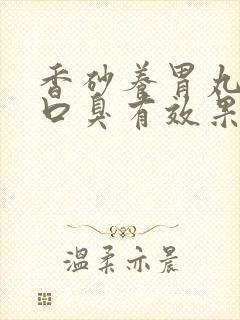 香砂养胃丸
口臭有效果
温柔亦晨